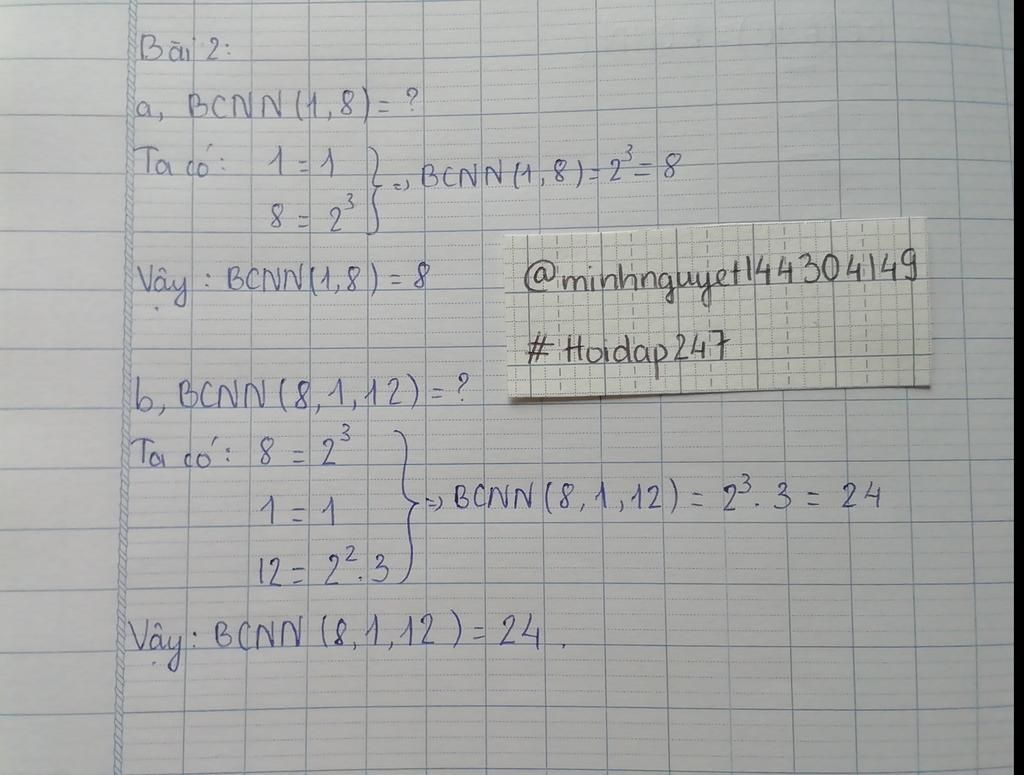 Bài 2:
a, BCNN(1,8) = ?
Ta có: 1 = 1
8 = 2³
} => BCNN(1,8) = 2³ = 8
Vậy: BCNN(1,8) = 8
@minhnguyet144304149
# Hoidap247
b, BCNN(8,1,12) = ?
Ta có: 8 = 2³
1 = 1
12 = 2².3
} => BCNN(8,1,12) = 2³.3 = 24
Vậy: BCNN(8,1,12) = 24.